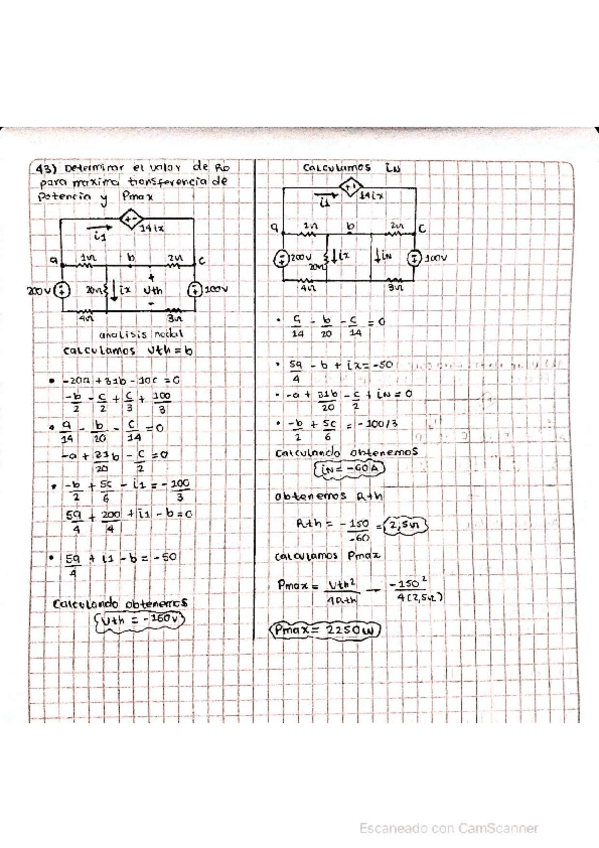 43) Determinar el valor de Ro
para maxima transferencia de
Potencia y Pmax
14ix
i1
a
1Ω
b
2Ω
c
200V
20Ω
ix
Vth
100V
4Ω
3Ω
analisis nodal
calculamos Vth = b
• -20a + 31b - 10c = 0
-b/2 - c/2 + c/3 + 100/3
• a/14 - b/20 - c/14 = 0
-a + 31b/20 - c/2 = 0
• -b/2 + 5c/6 - i1 = -100/3
5a/4 + 200/4 + i1 - b = 0
• 5a/4 + i1 - b = -50
Calculando obtenemos
Vth = -160V
Calculamos iN
14ix
i1
a
1Ω
b
2Ω
c
200V
20Ω
ix
iN
100V
4Ω
3Ω
• a/14 - b/20 - c/14 = 0
• 5a/4 - b + ix = -50
• -a + 31b/20 - c/2 + iN = 0
• -b/2 + 5c/6 = -100/3
Calculando obtenemos
iN = -60A
obtenemos Rth
Rth = -150/-60 = 2,5Ω
Calculamos Pmax
Pmax = Vth²/4Rth - -150²/4(2,5Ω)
Pmax = 2250W
Escaneado con CamScanner